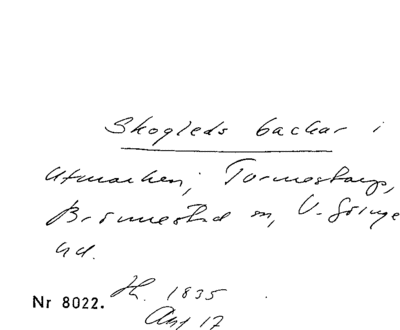 Skogleds backar i
Utmarken, Tormestorp,
Brönnestad sn, V. Göinge
hd.
Nr 8022. Jh. 1835
Akt 17